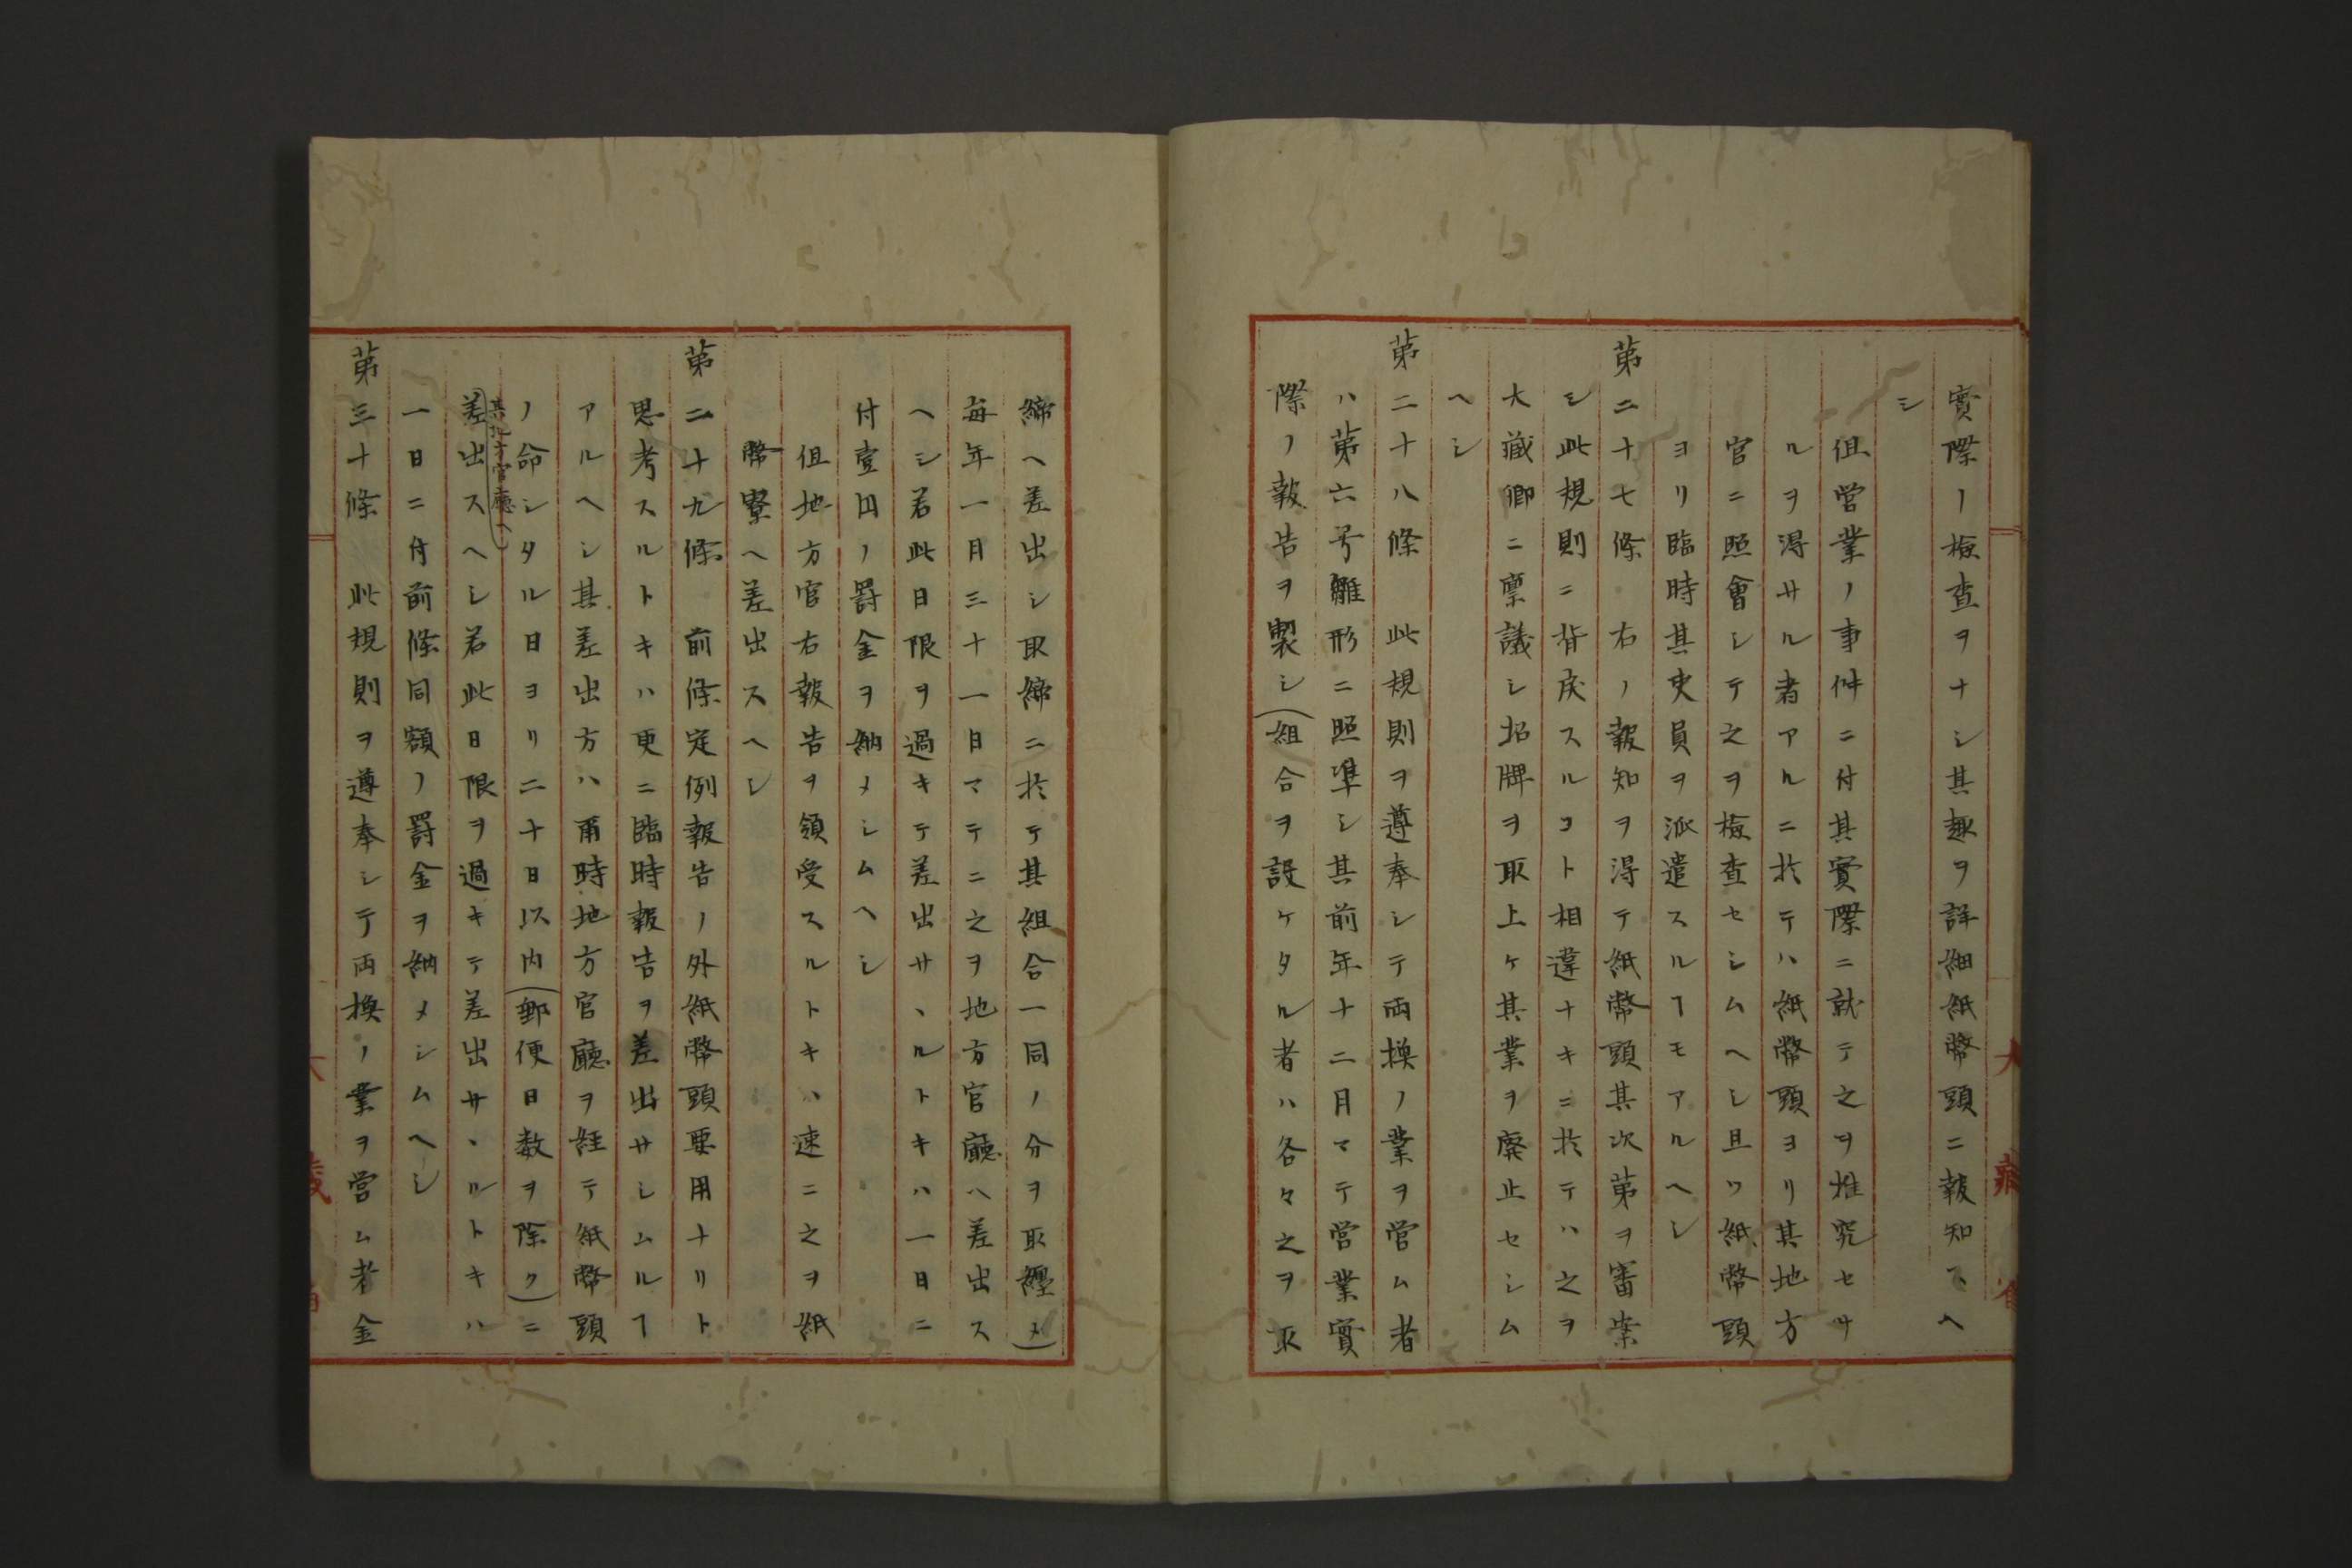 實際ノ檢査ヲナシ其趣ヲ詳細紙幣頭ニ報知スヘ
シ
但営業ノ事件ニ付其實際ニ就テ之ヲ推究セサ
ルヲ得サル者アルニ於テハ紙幣頭ヨリ其地方
官ニ照會シテ之ヲ檢査セシムヘシ且ツ紙幣頭
ヨリ臨時其吏員ヲ派遣スルヿモアルヘシ
第二十七條 右ノ報知ヲ得テ紙幣頭其次第ヲ審案
シ此規則ニ背戻スルコト相違ナキニ於テハ之ヲ
大藏卿ニ禀議シ招牌ヲ取上ケ其業ヲ廃止セシム
ヘシ
第二十八條 此規則ヲ遵奉シテ両換ノ業ヲ営ム者
ハ第六号雛形ニ照準シ其前年十二月マテ営業實
際ノ報告ヲ製シ(組合ヲ設ケタル者ハ各々之ヲ取
締ヘ差出シ取締ニ於テ其組合一同ノ分ヲ取纒メ)
毎年一月三十一日マテニ之ヲ地方官廳ヘ差出ス
ヘシ若此日限ヲ過キテ差出サヽルトキハ一日ニ
付壹円ノ罰金ヲ納メシムヘシ
但地方官右報告ヲ領受スルトキハ速ニ之ヲ紙
幣寮ヘ差出スヘシ
第二十九條 前條定例報告ノ外紙幣頭要用ナリト
思考スルトキハ更ニ臨時報告ヲ差出サシムルヿ
アルヘシ其差出方ハ甭時地方官廳ヲ経テ紙幣頭
ノ命シタル日ヨリ二十日以内(郵便日数ヲ除ク)ニ
其地方官廳ヘ
差出スヘシ若此日限ヲ過キテ差出サヽルトキハ
一日ニ付前條同額ノ罰金ヲ納メシムヘシ
第三十條 此規則ヲ遵奉シテ両換ノ業ヲ営ム者金
大藏省